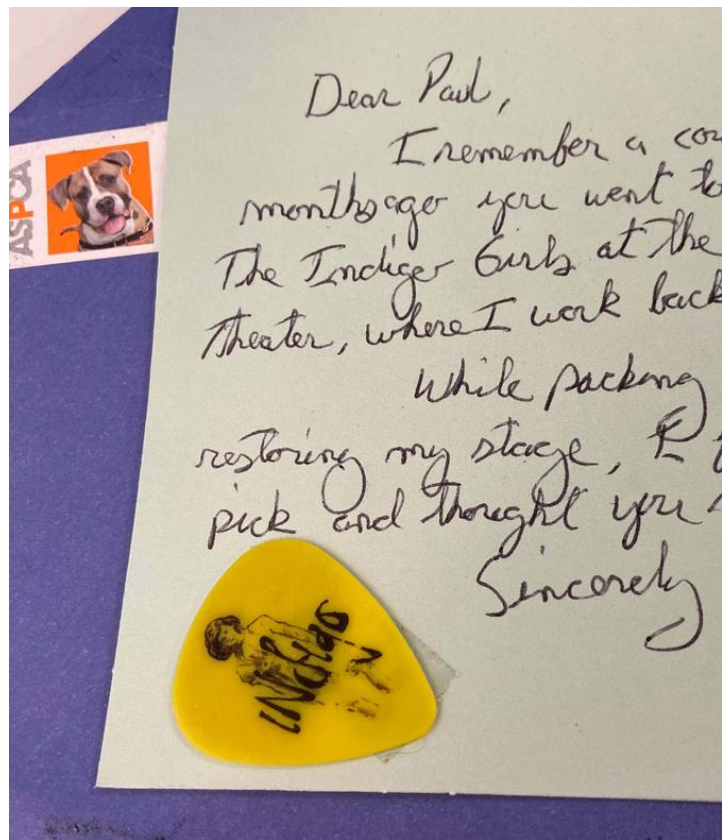 ASPCA
Dear Paul,
I remember a cou
months ago you went to
The Indigo Girls at the
Theater, where I work back
While packing
restoring my stage, I f
pick and thought you
Sincerely